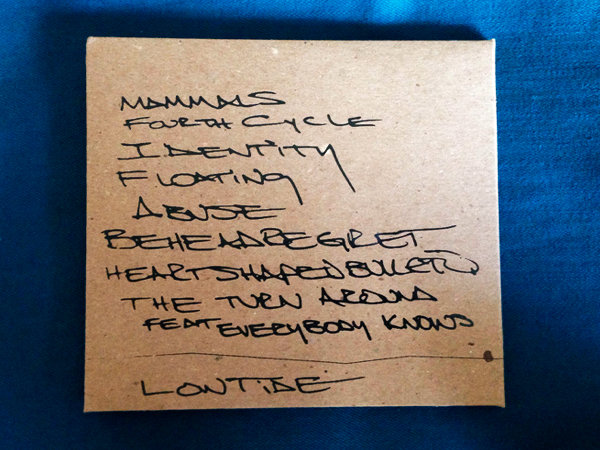 MAMMALS
FOURTH CYCLE
IDENTITY
FLOATING
ABUSE
BEHEADREGRET
HEARTSHAPEDBULLETS
THE TURN AROUND
FEAT EVERYBODY KNOWS
LONTIDE